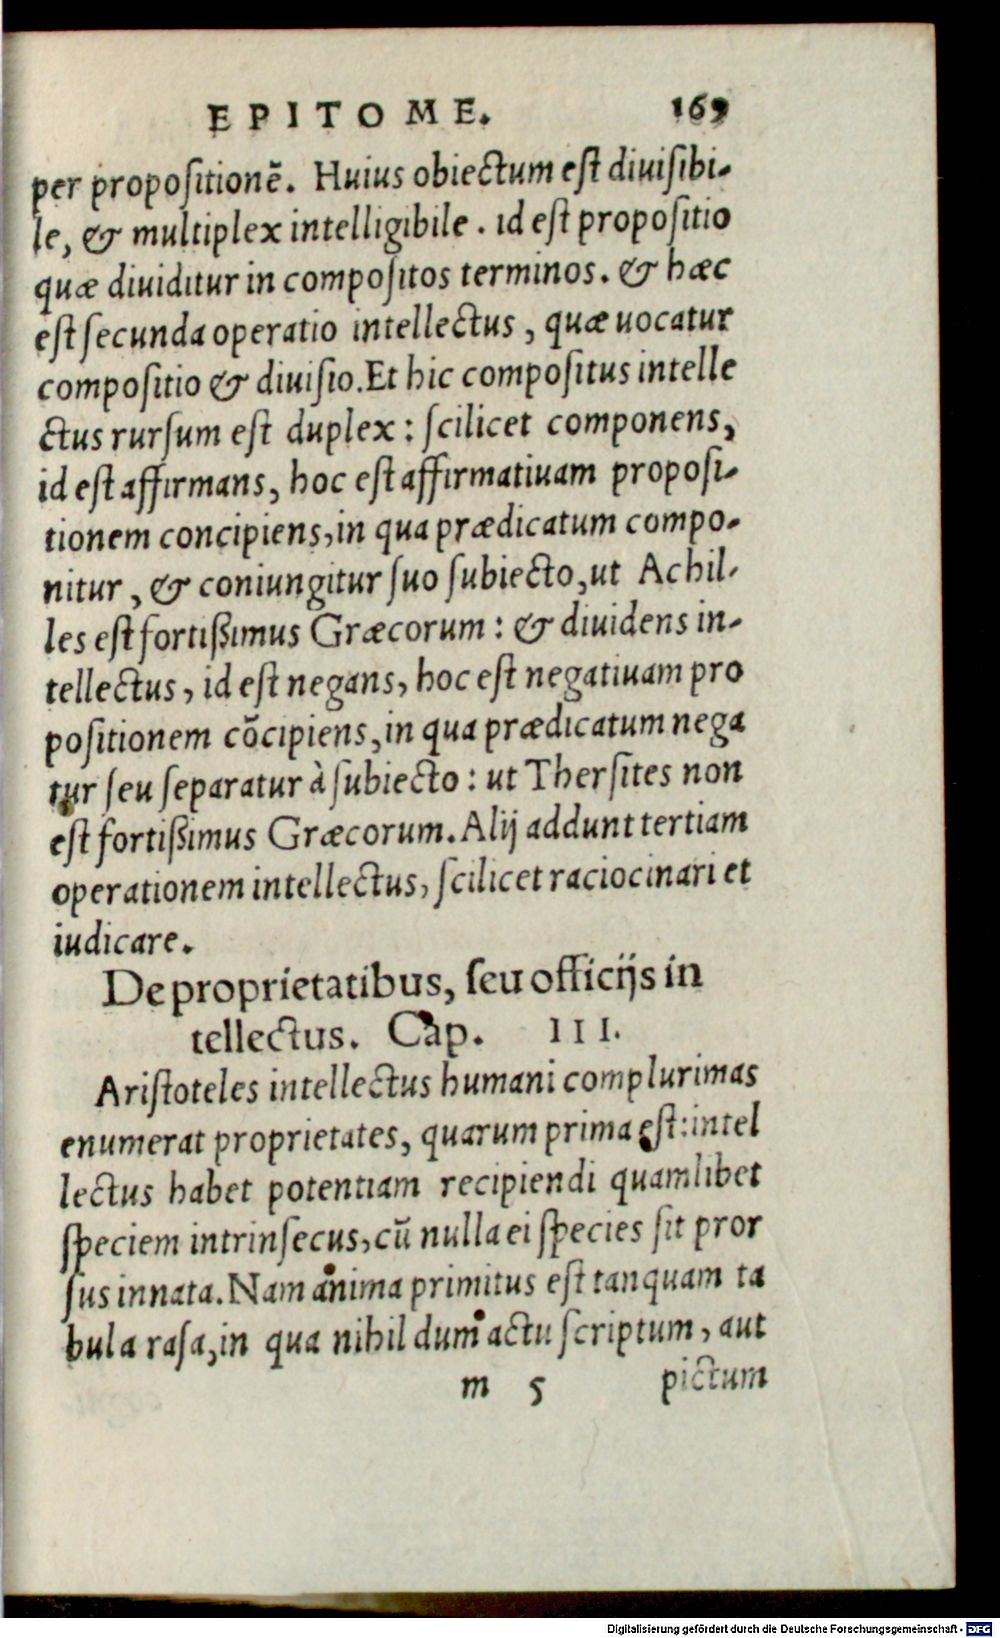 EPITOME. 169
per propoſitionē. Huius obiectum eſt diuiſibi-
le, & multiplex intelligibile. id eſt propoſitio
quæ diuiditur in compoſitos terminos. & hæc
eſt ſecunda operatio intellectus, quæ uocatur
compoſitio & diuiſio. Et hic compoſitus intelle
ctus rurſum est duplex: ſcilicet componens,
id eſt affirmans, hoc eſt affirmatiuam propoſi-
tionem concipiens, in qua prædicatum compo-
nitur, & coniungitur ſuo ſubiecto, ut Achil-
les eſt fortißimus Græcorum: & diuidens in-
tellectus, id eſt negans, hoc eſt negatiuam pro
poſitionem cōcipiens, in qua prædicatum nega
tur ſeu ſeparatur à ſubiecto: ut Therſites non
eſt fortißimus Græcorum. Alij addunt tertiam
operationem intellectus, ſcilicet raciocinari et
iudicare.
De proprietatibus, ſeu officijs in
tellectus. Cap. III.
Ariſtoteles intellectus humani complurimas
enumerat proprietates, quarum prima eſt: intel
lectus habet potentiam recipiendi quamlibet
ſpeciem intrinſecus, cū nulla ei ſpecies ſit pror
ſus innata. Nam anima primitus eſt tanquam ta
bula raſa, in qua nihil dum actu ſcriptum, aut
m 5 pictum
Digitalisierung gefördert durch die Deutsche Forschungsgemeinschaft - DFG